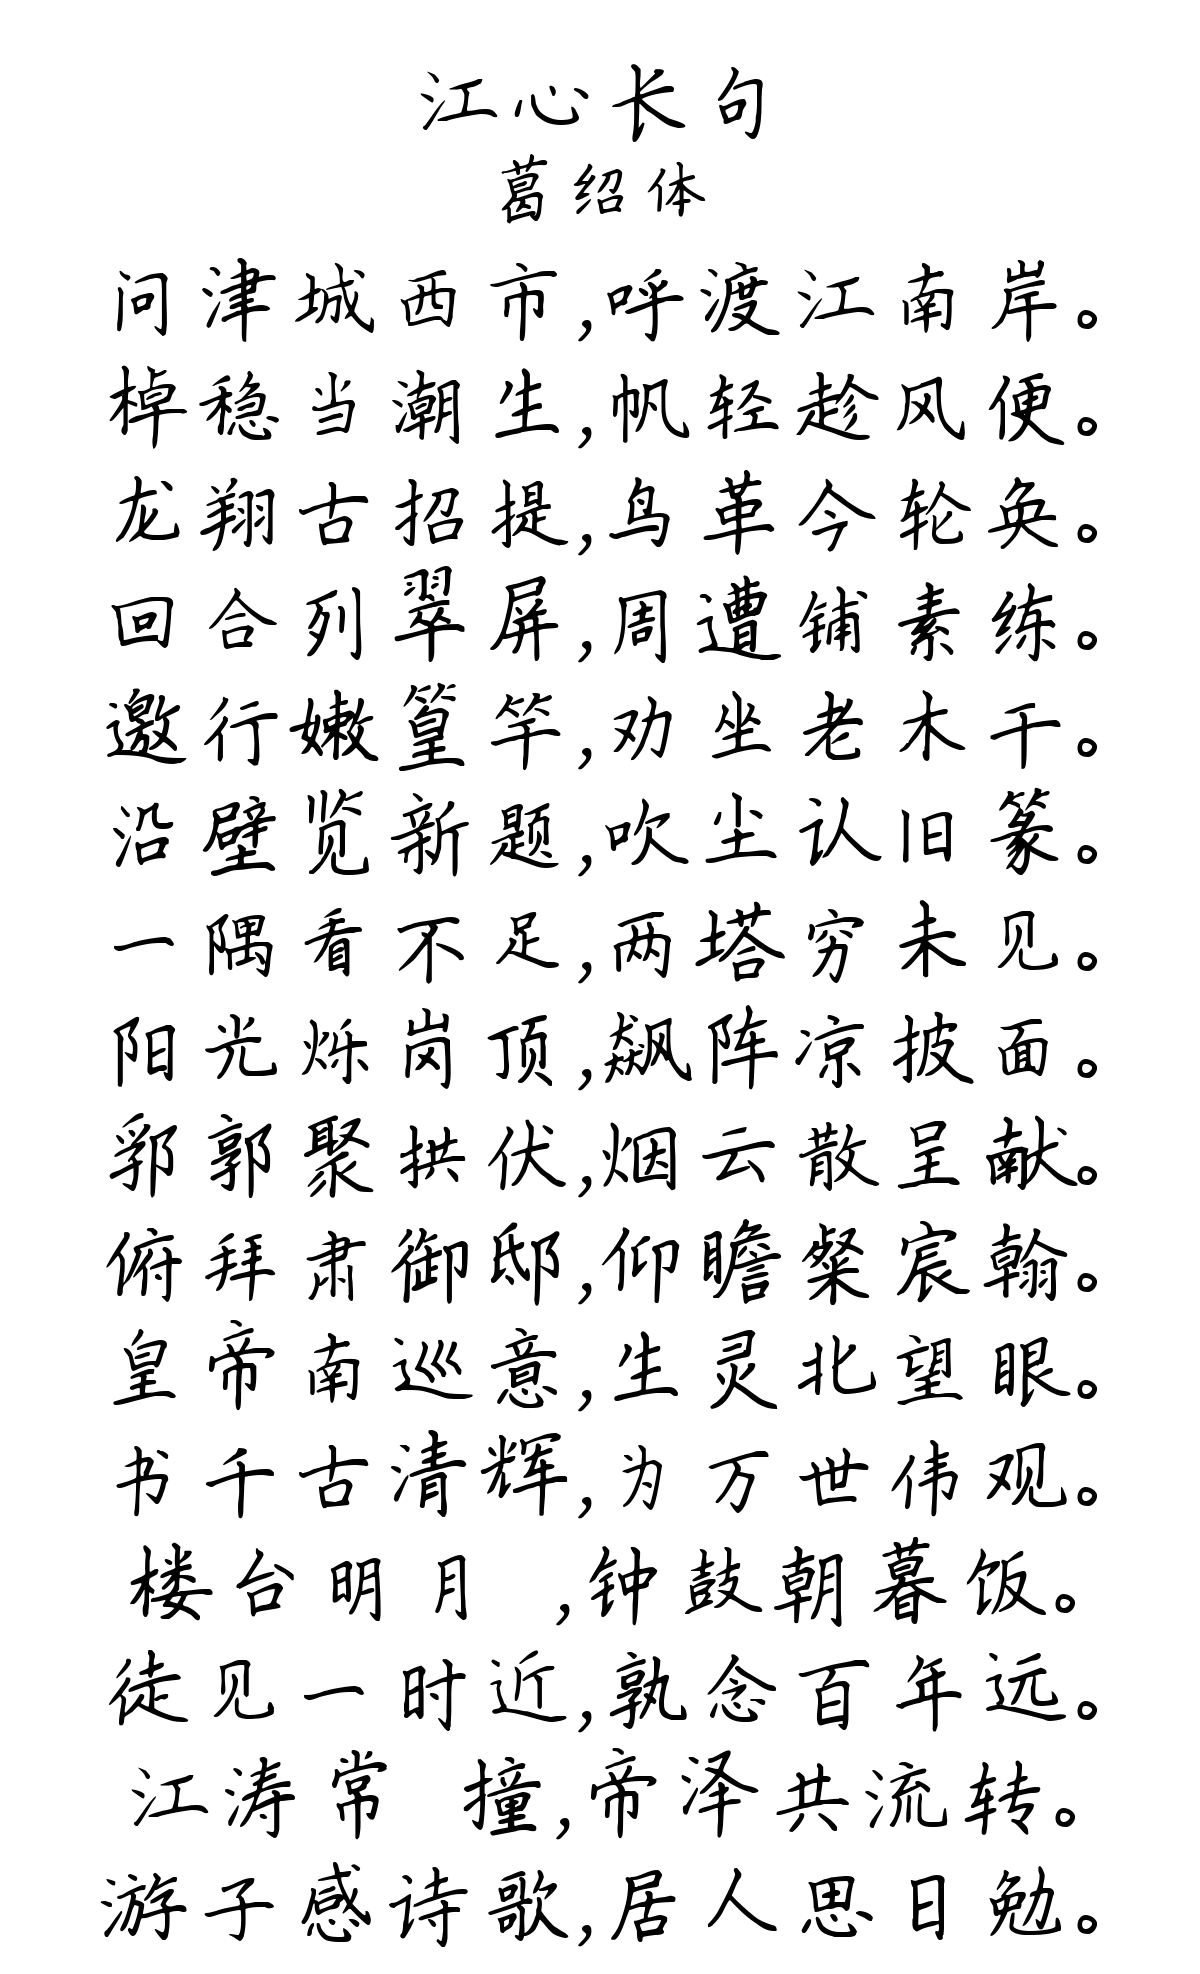 江心长句
葛绍体
问津城西市,呼渡江南岸。
棹稳当潮生,帆轻趁风便。
龙翔古招提,鸟革今轮奂。
回合列翠屏,周遭铺素练。
邀行嫩篁竿,劝坐老木干。
沿壁览新题,吹尘认旧篆。
一隅看不足,两塔穷未见。
阳光烁岗顶,飙阵凉披面。
郛郭聚拱伏,烟云散呈献。
俯拜肃御邸,仰瞻粲宸翰。
皇帝南巡意,生灵北望眼。
书千古清辉,为万世伟观。
楼台明月 ,钟鼓朝暮饭。
徒见一时近,孰念百年远。
江涛常 撞,帝泽共流转。
游子感诗歌,居人思日勉。